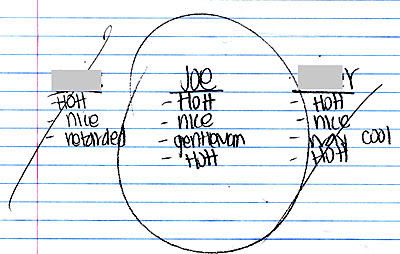 Hott
- nice
- retarded
Joe
- Hott
- nice
- gentleman
- Hott
r
- Hott
- nice
- cool
- Hott